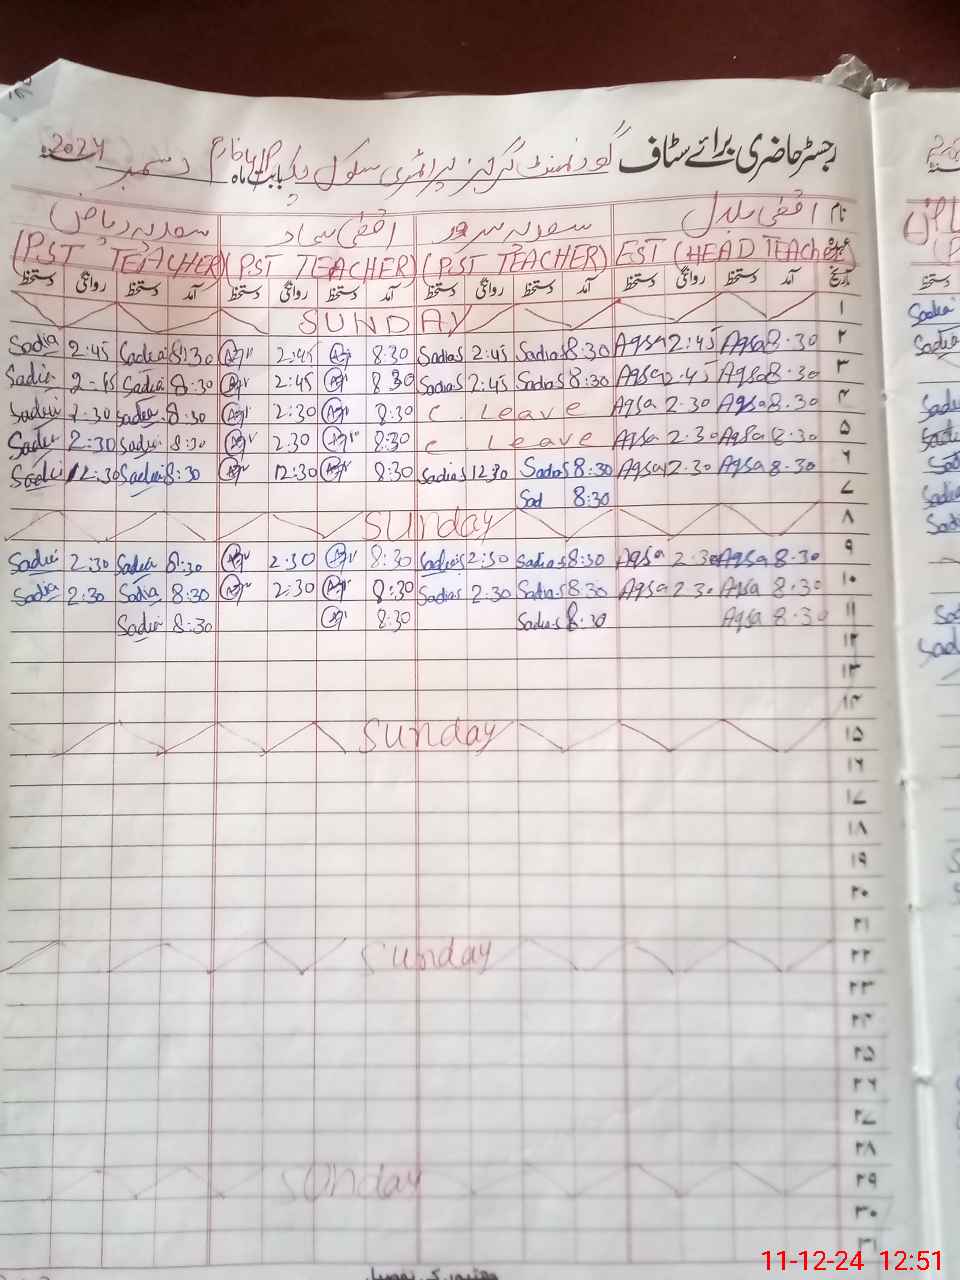 رجسٹر حاضری برائے سٹاف گورنمنٹ گرلز پرائمری سکول بابت ماہ دسمبر 2024
نام اقصٰی بلال سعدیہ سرور اقصٰی سعدیہ ریاض
عہدہ EST (HEAD TEACHER) (PST TEACHER) (PST TEACHER) (PST TEACHER)
تاریخ آمد دستخط روانگی دستخط آمد دستخط روانگی دستخط آمد دستخط روانگی دستخط آمد دستخط روانگی دستخط
۱ SUNDAY
۲ 8:30 Aqsa 2:45 Aqsa 8:30 Sadia S 2:45 Sadia S 8:30 2:45 8:30 Sadia 2:45 Sadia
۳ 8:30 Aqsa 2:45 Aqsa 8:30 Sadia S 2:45 Sadia S 8:30 2:45 8:30 Sadia 2:45 Sadia
۴ 8:30 Aqsa 2:30 Aqsa C. Leave 8:30 2:30 8:30 Sadia 2:30 Sadia
۵ 8:30 Aqsa 2:30 Aqsa C Leave 8:30 2:30 8:30 Sadia 2:30 Sadia
۶ 8:30 Aqsa 12:30 Aqsa 8:30 Sadia S 12:30 Sadia S 8:30 12:30 8:30 Sadia 12:30 Sadia
۷ 8:30 Sad
۸ Sunday
۹ 8:30 Aqsa 2:30 Aqsa 8:30 Sadia S 2:30 Sadia S 8:30 2:30 8:30 Sadia 2:30 Sadia
۱۰ 8:30 Aqsa 2:30 Aqsa 8:30 Sadia S 2:30 Sadia S 8:30 2:30 8:30 Sadia 2:30 Sadia
۱۱ 8:30 Aqsa 8:30 Sadia S 8:30 8:30 Sadia
۱۲
۱۳
۱۴
۱۵ Sunday
۱۶
۱۷
۱۸
۱۹
۲۰
۲۱
۲۲ Sunday
۲۳
۲۴
۲۵
۲۶
۲۷
۲۸
۲۹ Sunday
۳۰
۳۱
11-12-24 12:51